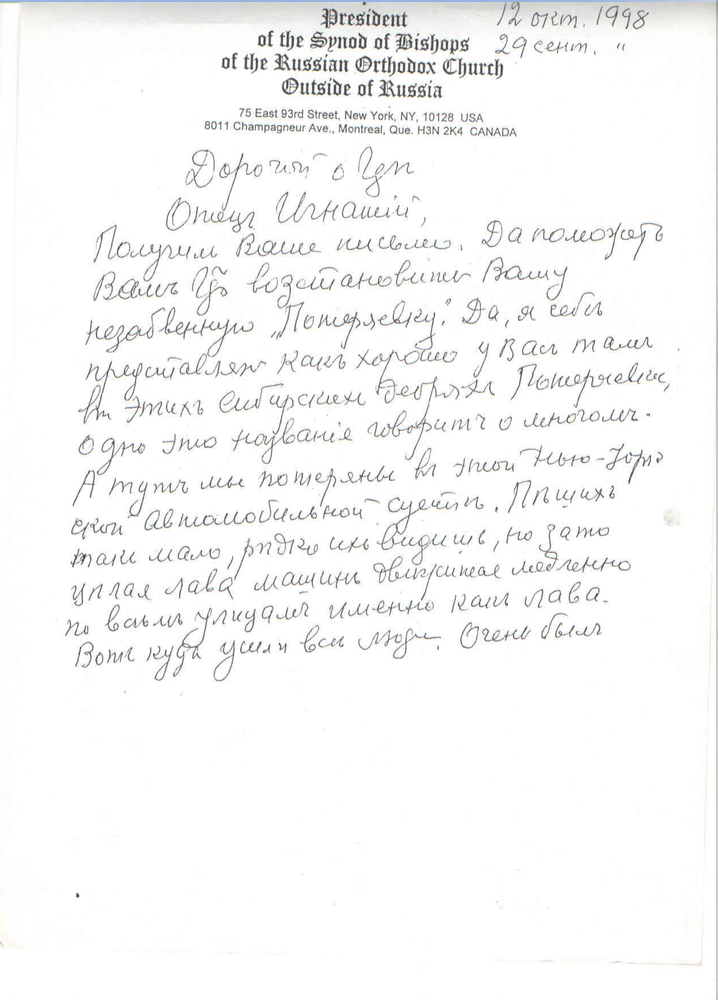 President
of the Synod of Bishops
of the Russian Orthodox Church
Outside of Russia
12 окт. 1998
29 сент. "
75 East 93rd Street, New York, NY, 10128 USA
8011 Champagneur Ave., Montreal, Que. H3N 2K4 CANADA
Дорогой о
Отецъ Игнатій,
Получил Ваше письмо. Да поможетъ
Вамъ возстановить Вашу
незабвенную „Потеряевку". Да, я себѣ
представляю какъ хорошо у Васъ тамъ
въ этихъ Сибирских дебряхъ Потеряевки,
Одно это названіе говоритъ о многомъ.
А тутъ мы потеряны въ этой Нью-Іорк
ской автомобильной суетѣ. Пѣшихъ
так мало, рѣдко ихъ видишь, но зато
цѣлая лава машинъ движится медленно
по всѣмъ улицамъ именно какъ лава.
Вотъ куда ушли всѣ люди. Очень былъ